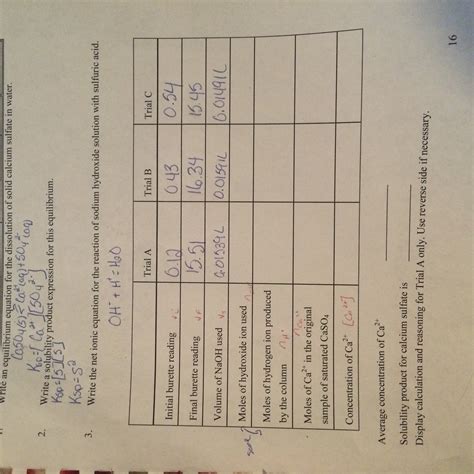 Write an equilibrium equation for the dissolution of solid calcium sulfate in water.
CaSO4(s) ⇌ Ca2+(aq) + SO4 2-(aq)
Ksp = [Ca2+][SO4 2-]
2. Write a solubility product expression for this equilibrium.
Ksp = [S][S]
Ksp = S2
3. Write the net ionic equation for the reaction of sodium hydroxide solution with sulfuric acid.
OH- + H+ = H2O
Trial A Trial B Trial C
Initial burette reading 0.12 0.43 0.54
Final burette reading 15.51 16.34 15.45
Volume of NaOH used 0.01539L 0.0159L 0.01491L
Moles of hydroxide ion used
same
Moles of hydrogen ion produced
by the column
Moles of Ca2+ in the original
sample of saturated CaSO4
Concentration of Ca2+ [Ca2+]
Average concentration of Ca2+
Solubility product for calcium sulfate is
Display calculation and reasoning for Trial A only. Use reverse side if necessary.
16